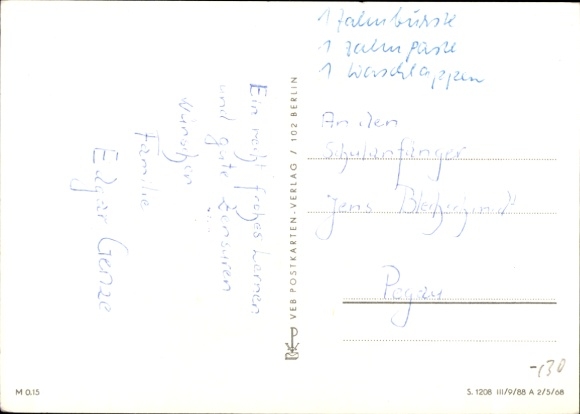 1 Zahnbürste
1 Zahnpaste
1 Waschlappen
Ein recht frohes Lernen
und gute Zensuren
wünschen
Familie
Edgar Genze
VEB POSTKARTEN-VERLAG / 102 BERLIN
An den
Schulanfänger
Jens Blechschmidt
Pegau
-,30
M 0.15
S. 1208 III/9/88 A 2/5/68